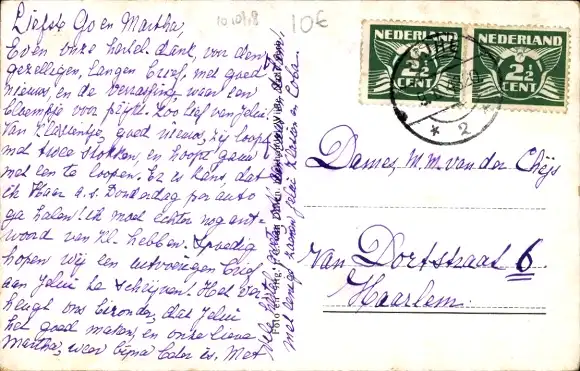 Liefste Go en Martha,
10 10/18
10€
Even onze hartel. dank voor den
gezelligen, langen brief, met goed
nieuws, en de verrassing van een
bloempje voor pijke. Zoo lief van jelui,
Van Klasientje, goed nieuws, zij loopt
met twee stokken, en hoopt gauw
met een te loopen. Er is kans, dat
ik Haar a.s. Donderdag per auto
ga halen! ik moet echter nog ant-
woord van Kl. hebben. Spoedig
hopen wij een uitvoerigen brief
aan jelui te schrijven! Het ver-
heugt ons bizonder, dat jelui
het goed maken, en onze lieve
Martha, weer bijna beter is. Met
vele hartel.
met innige zoenen, jelui Klasien en Coba.
NEDERLAND
2½
CENT
NEDERLAND
2½
CENT
2
Dames, M. M. van der Chijs
van Dortstraat 6
Haarlem.